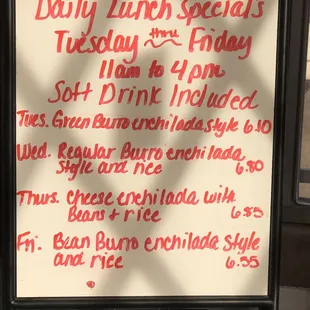 Daily Lunch Specials
Tuesday thru Friday
11am to 4pm
Soft Drink Included
Tues. Green Burro enchilada style 6.10
Wed. Regular Burro enchilada
style and rice 6.80
Thurs. cheese enchilada with
Beans + rice 6.85
Fri. Bean Burro enchilada style
and rice 6.55